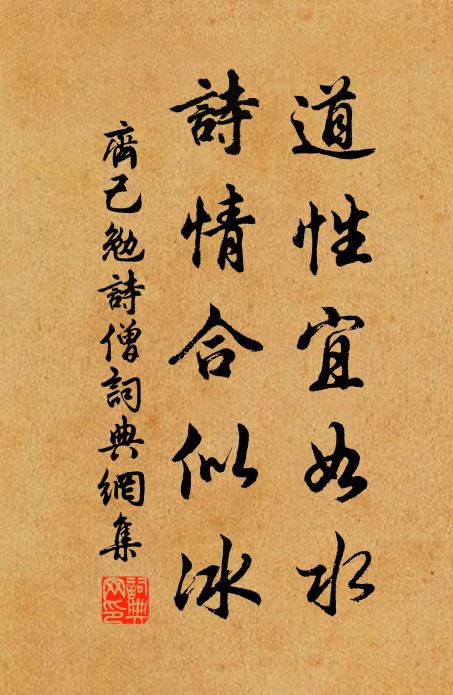 道性宜如水
詩情合似冰
齊己勉詩僧詞典網集
詞典
网印